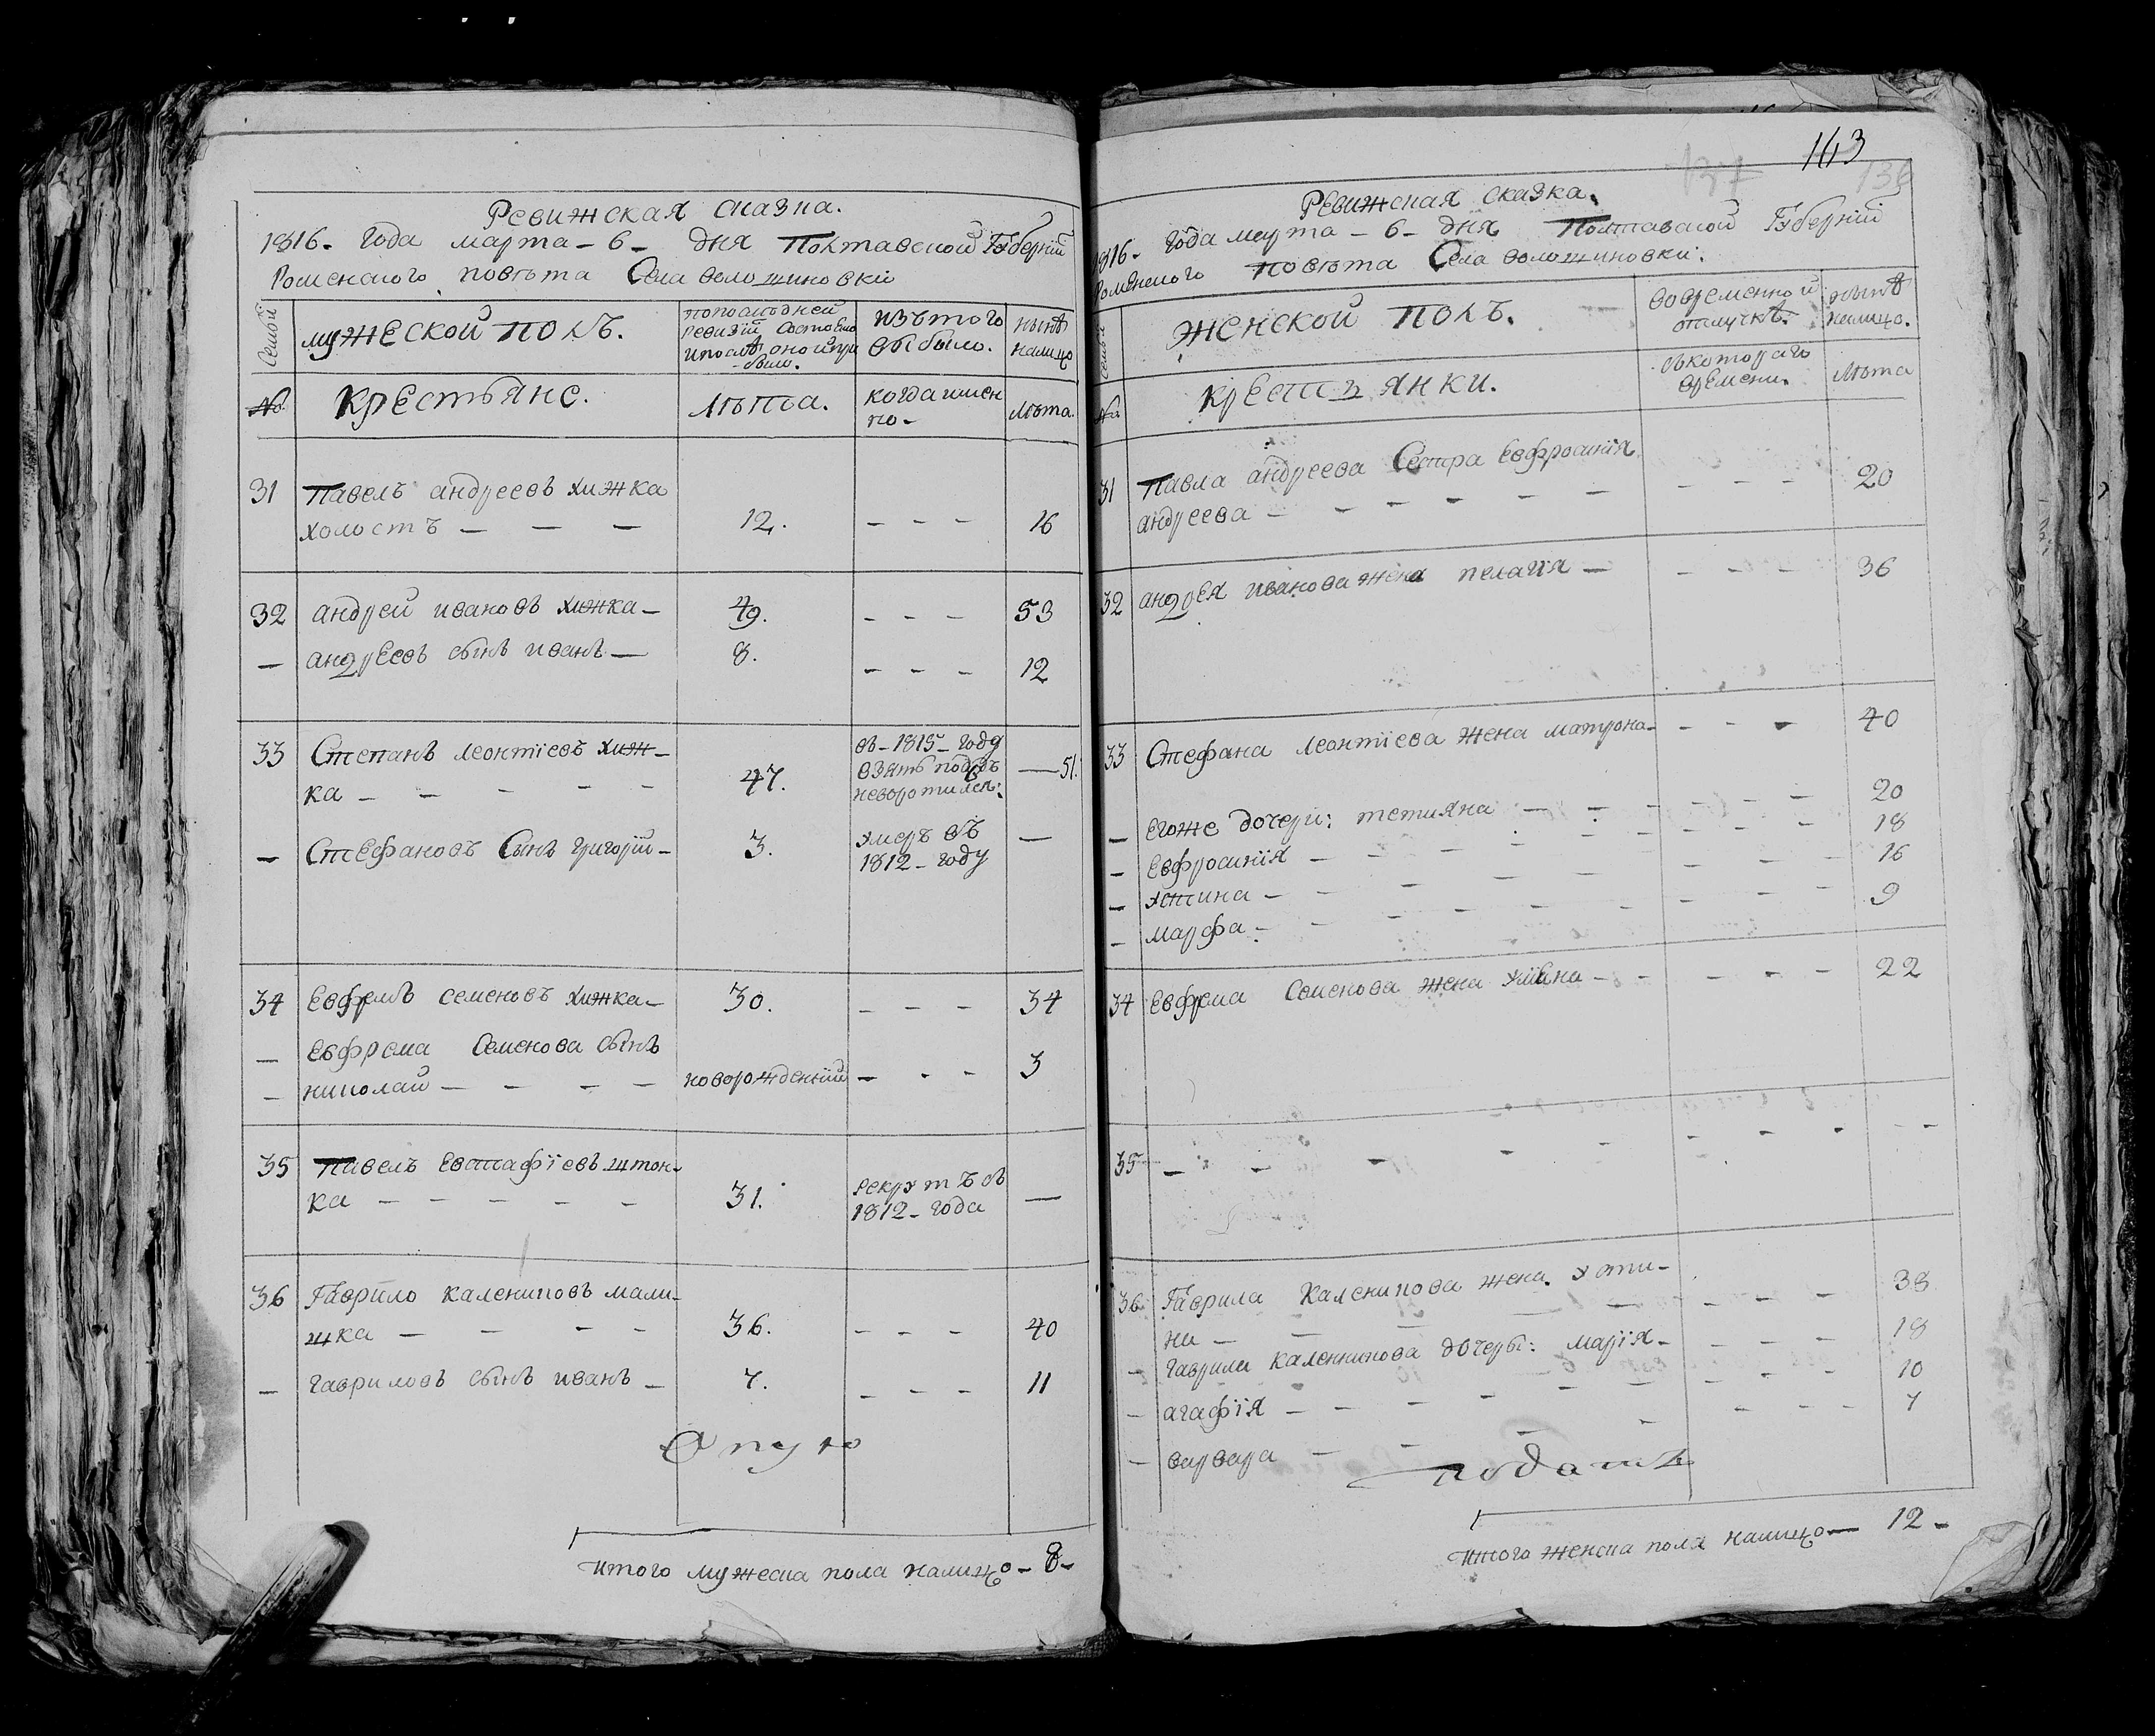 Ревижская сказка.
1816. года марта - 6 - дня Полтавской Губерніи
Роменского повѣта Села волошиновки
Семьи
мужеской полъ.
попослѣдней
ревизіи состояло
ипослѣ оной при
было.
изътого
выбыло.
нынѣ
налицо
№
крестьяне.
лѣта.
когда имен
но -
лѣта.
31 Павелъ андреевъ хижка
холостъ — — — 12. - - - 16
32 андрей ивановъ хижка — 49. - - - 53
— андреевъ сынъ иванъ — 8. - - - 12
33 Степанъ леонтіевъ хиж-
ка - - - - - 47. въ - 1815 - году
взятъ
неворотился: — 51.
— Стефановъ Сынъ григорій - 3. умеръ въ
1812 - году —
34 Евфремъ семеновъ хижка - 30. - - - 34
— Евфрема Семенова сынъ
— николай - - - - новорожденній - - - 3
35 Павелъ Евстафіевъ штон-
ка - - - - - 31. рекрутъ съ
1812 - года —
36 Гаврило калениковъ мали-
шка - - - - 36. - - - 40
— гавриловъ сынъ иванъ - 7. - - - 11
Итого мужеска пола налицо - 8 -
163
137
136
Ревижская сказка.
1816. года марта - 6 - дня Полтавской Губерніи
Роменского повѣта Села волошиновки.
Семьи
женской полъ.
вовременной
отлучкѣ.
нынѣ
налицо.
№
крестьянки.
съкотораго
времени.
лѣта
31 Павла андреева Сестра Евфросинія
андреева - - - - - - - - 20
32 андрея иванова жена пелагія - - - - 36
33 Стефана леонтіева жена матрона - - - - 40
— Егоже дочери: тетияна - - - - - - 20
— Евфросинія - - - - - - - 18
— устина - - - - - - - 16
— марфа - - - - - - - 9
34 Евфрема Семенова жена - - - - - 22
35 - - - - - - - - - - -
36 Гаврила Каленикова жена усти-
на - - - - - - - 38
— гаврила каленикова дочеры: марія - - - - 18
— агафія - - - - - - - - 10
— варвара - - - - - - - 7
Итого женска пола налицо — 12 -